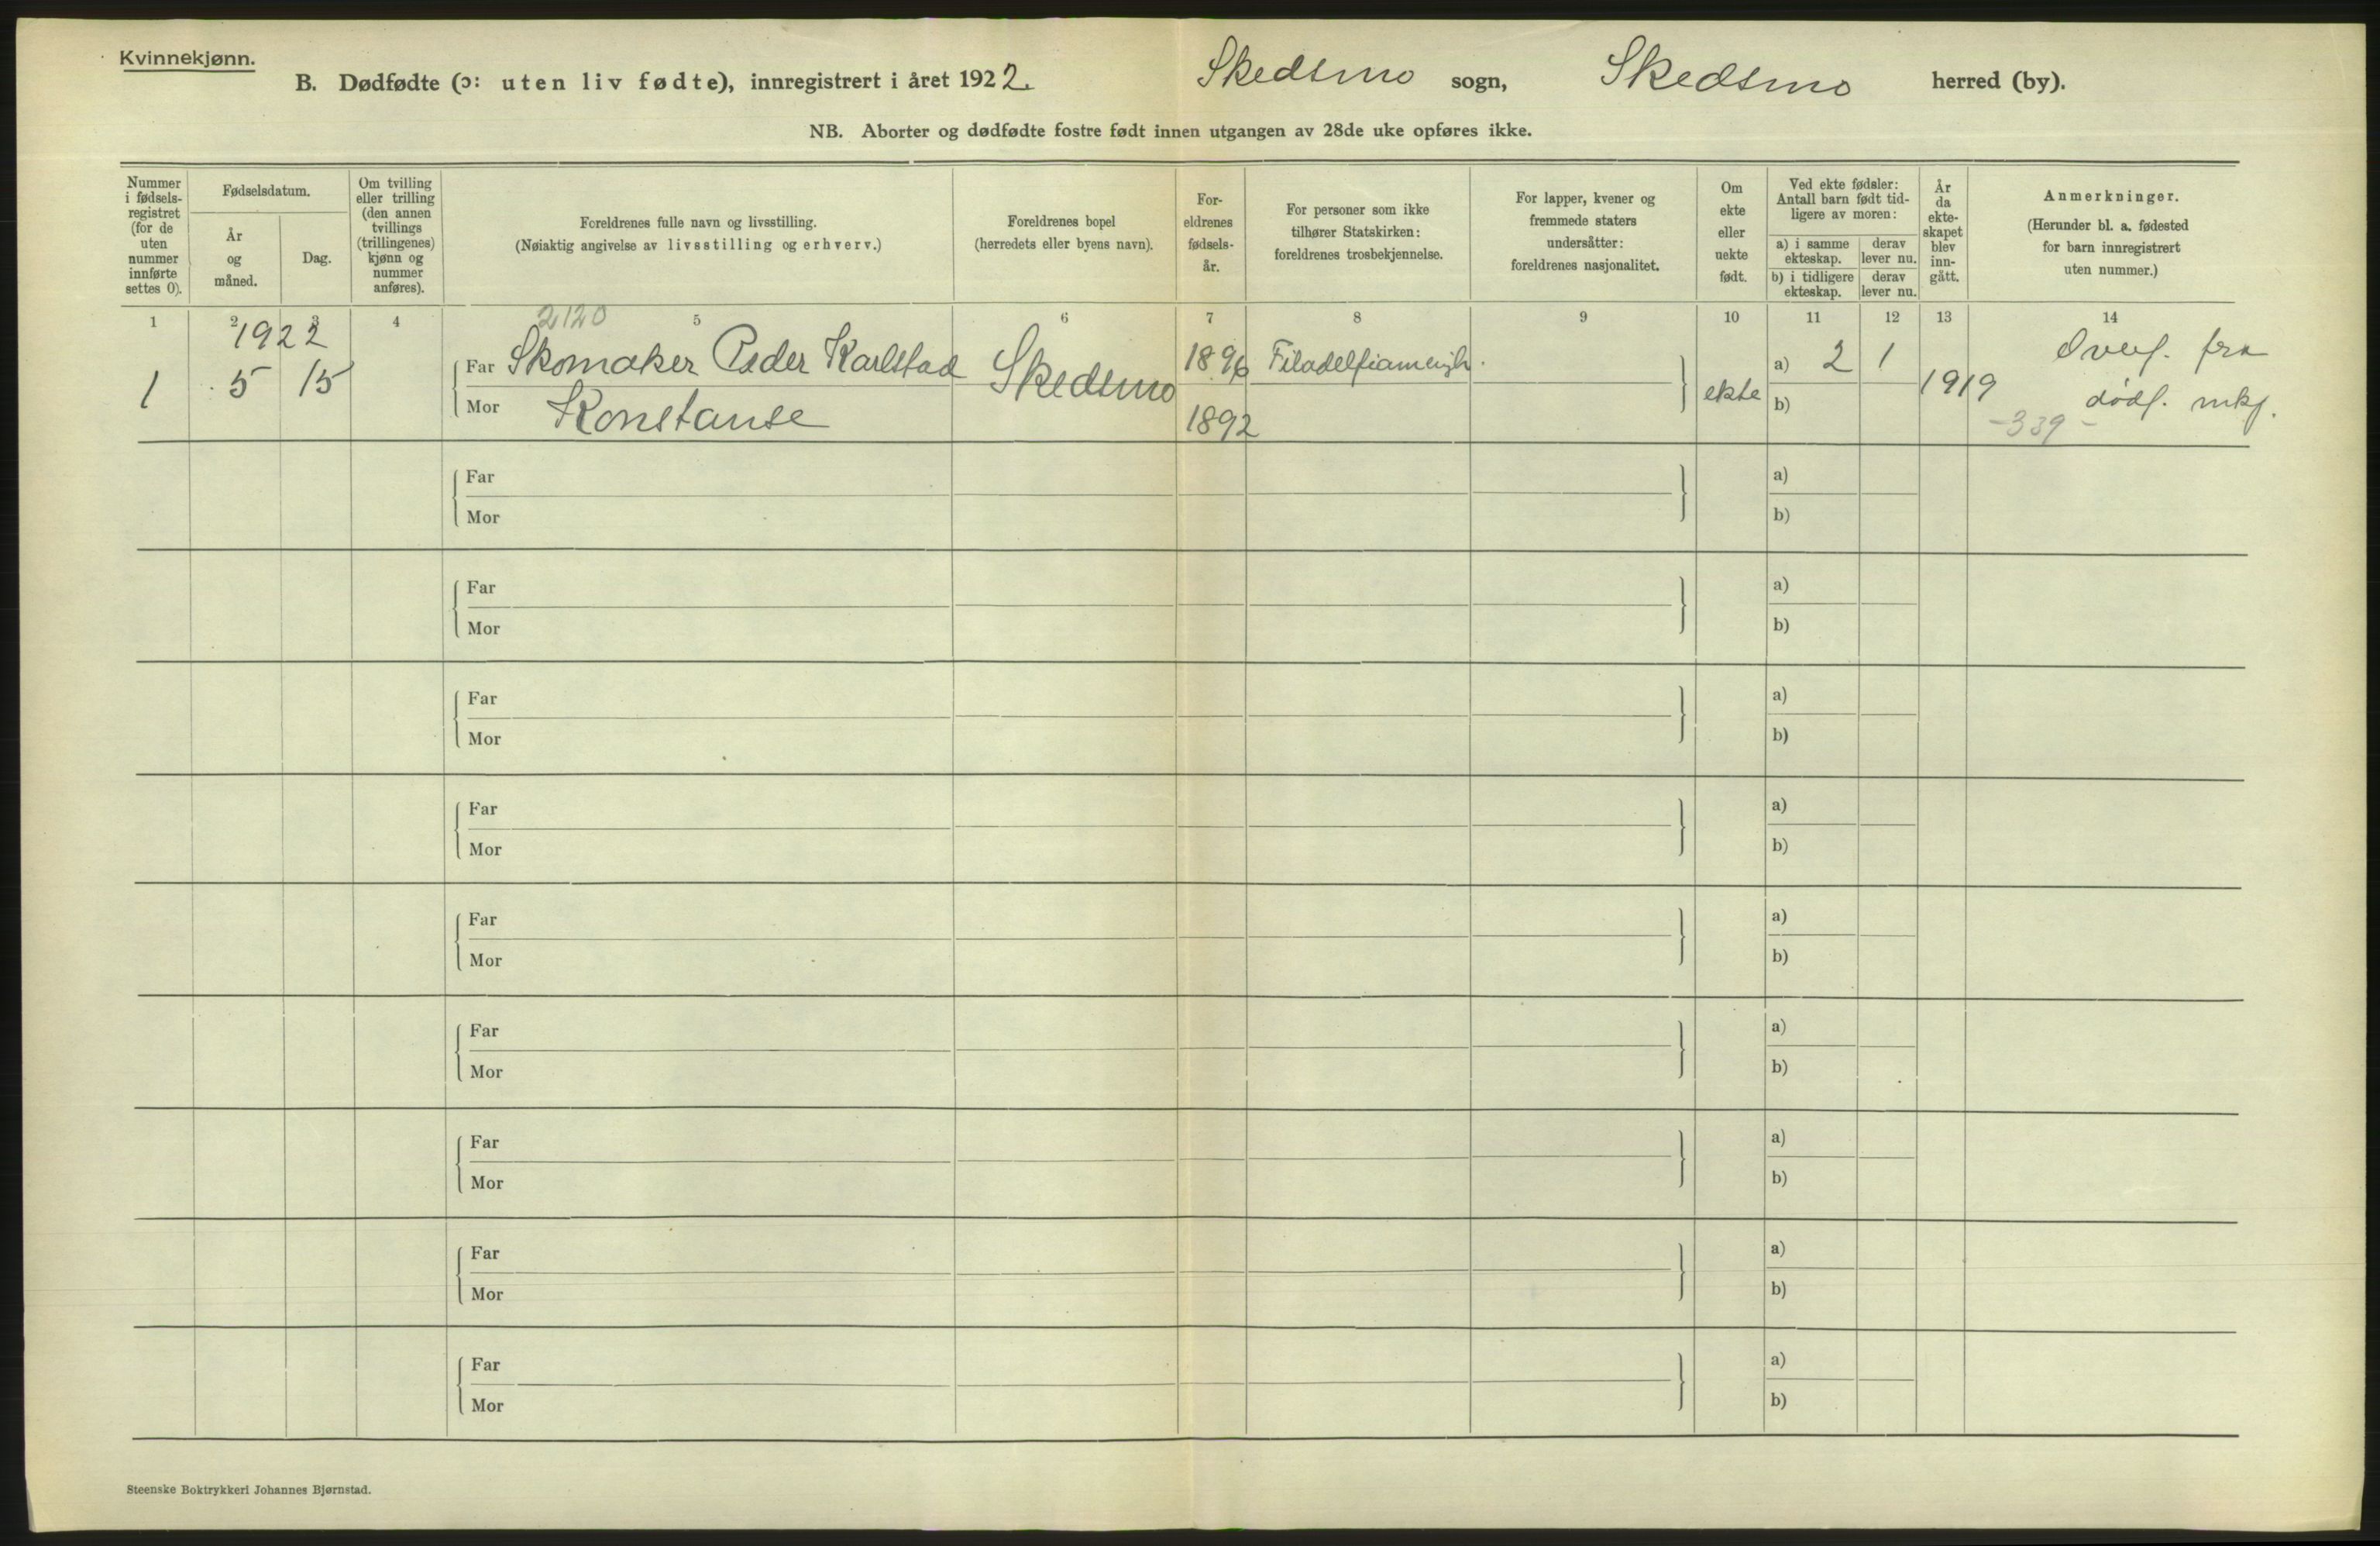 Kvinnekjønn.
B. Dødfødte (ɔ: uten liv fødte), innregistrert i året 1922. Skedsmo sogn, Skedsmo herred (by).
NB. Aborter og dødfødte fostre født innen utgangen av 28de uke opføres ikke.
Nummer i fødsels- registret (for de uten nummer innførte settes 0).
Fødselsdatum.
År og måned.
Dag.
Om tvilling eller trilling (den annen tvillings (trillingenes) kjønn og nummer anføres).
Foreldrenes fulle navn og livsstilling.
(Nøiaktig angivelse av livsstilling og erhverv.)
Foreldrenes bopel
(herredets eller byens navn).
For- eldrenes fødsels- år.
For personer som ikke tilhører Statskirken: foreldrenes trosbekjennelse.
For lapper, kvener og fremmede staters undersåtter: foreldrenes nasjonalitet.
Om ekte eller uekte født.
Ved ekte fødsler: Antall barn født tid- ligere av moren:
a) i samme ekteskap.
derav lever nu.
b) i tidligere ekteskap.
derav lever nu.
År da ekte- skapet blev inn- gått.
Anmerkninger.
(Herunder bl. a. fødested for barn innregistrert uten nummer.)
1 2 3 4 5 6 7 8 9 10 11 12 13 14
2120
1922
1 5 15
Far Skomaker Peder Karlstad Skedsmo 1896
Mor Konstanse 1892
ekte a) 2 1
b)
1919
Overf. fra
dødf. mkj.
-339-
Far a)
Mor b)
Far a)
Mor b)
Far a)
Mor b)
Far a)
Mor b)
Far a)
Mor b)
Far a)
Mor b)
Far a)
Mor b)
Far a)
Mor b)
Far a)
Mor b)
Steenske Boktrykkeri Johannes Bjørnstad.